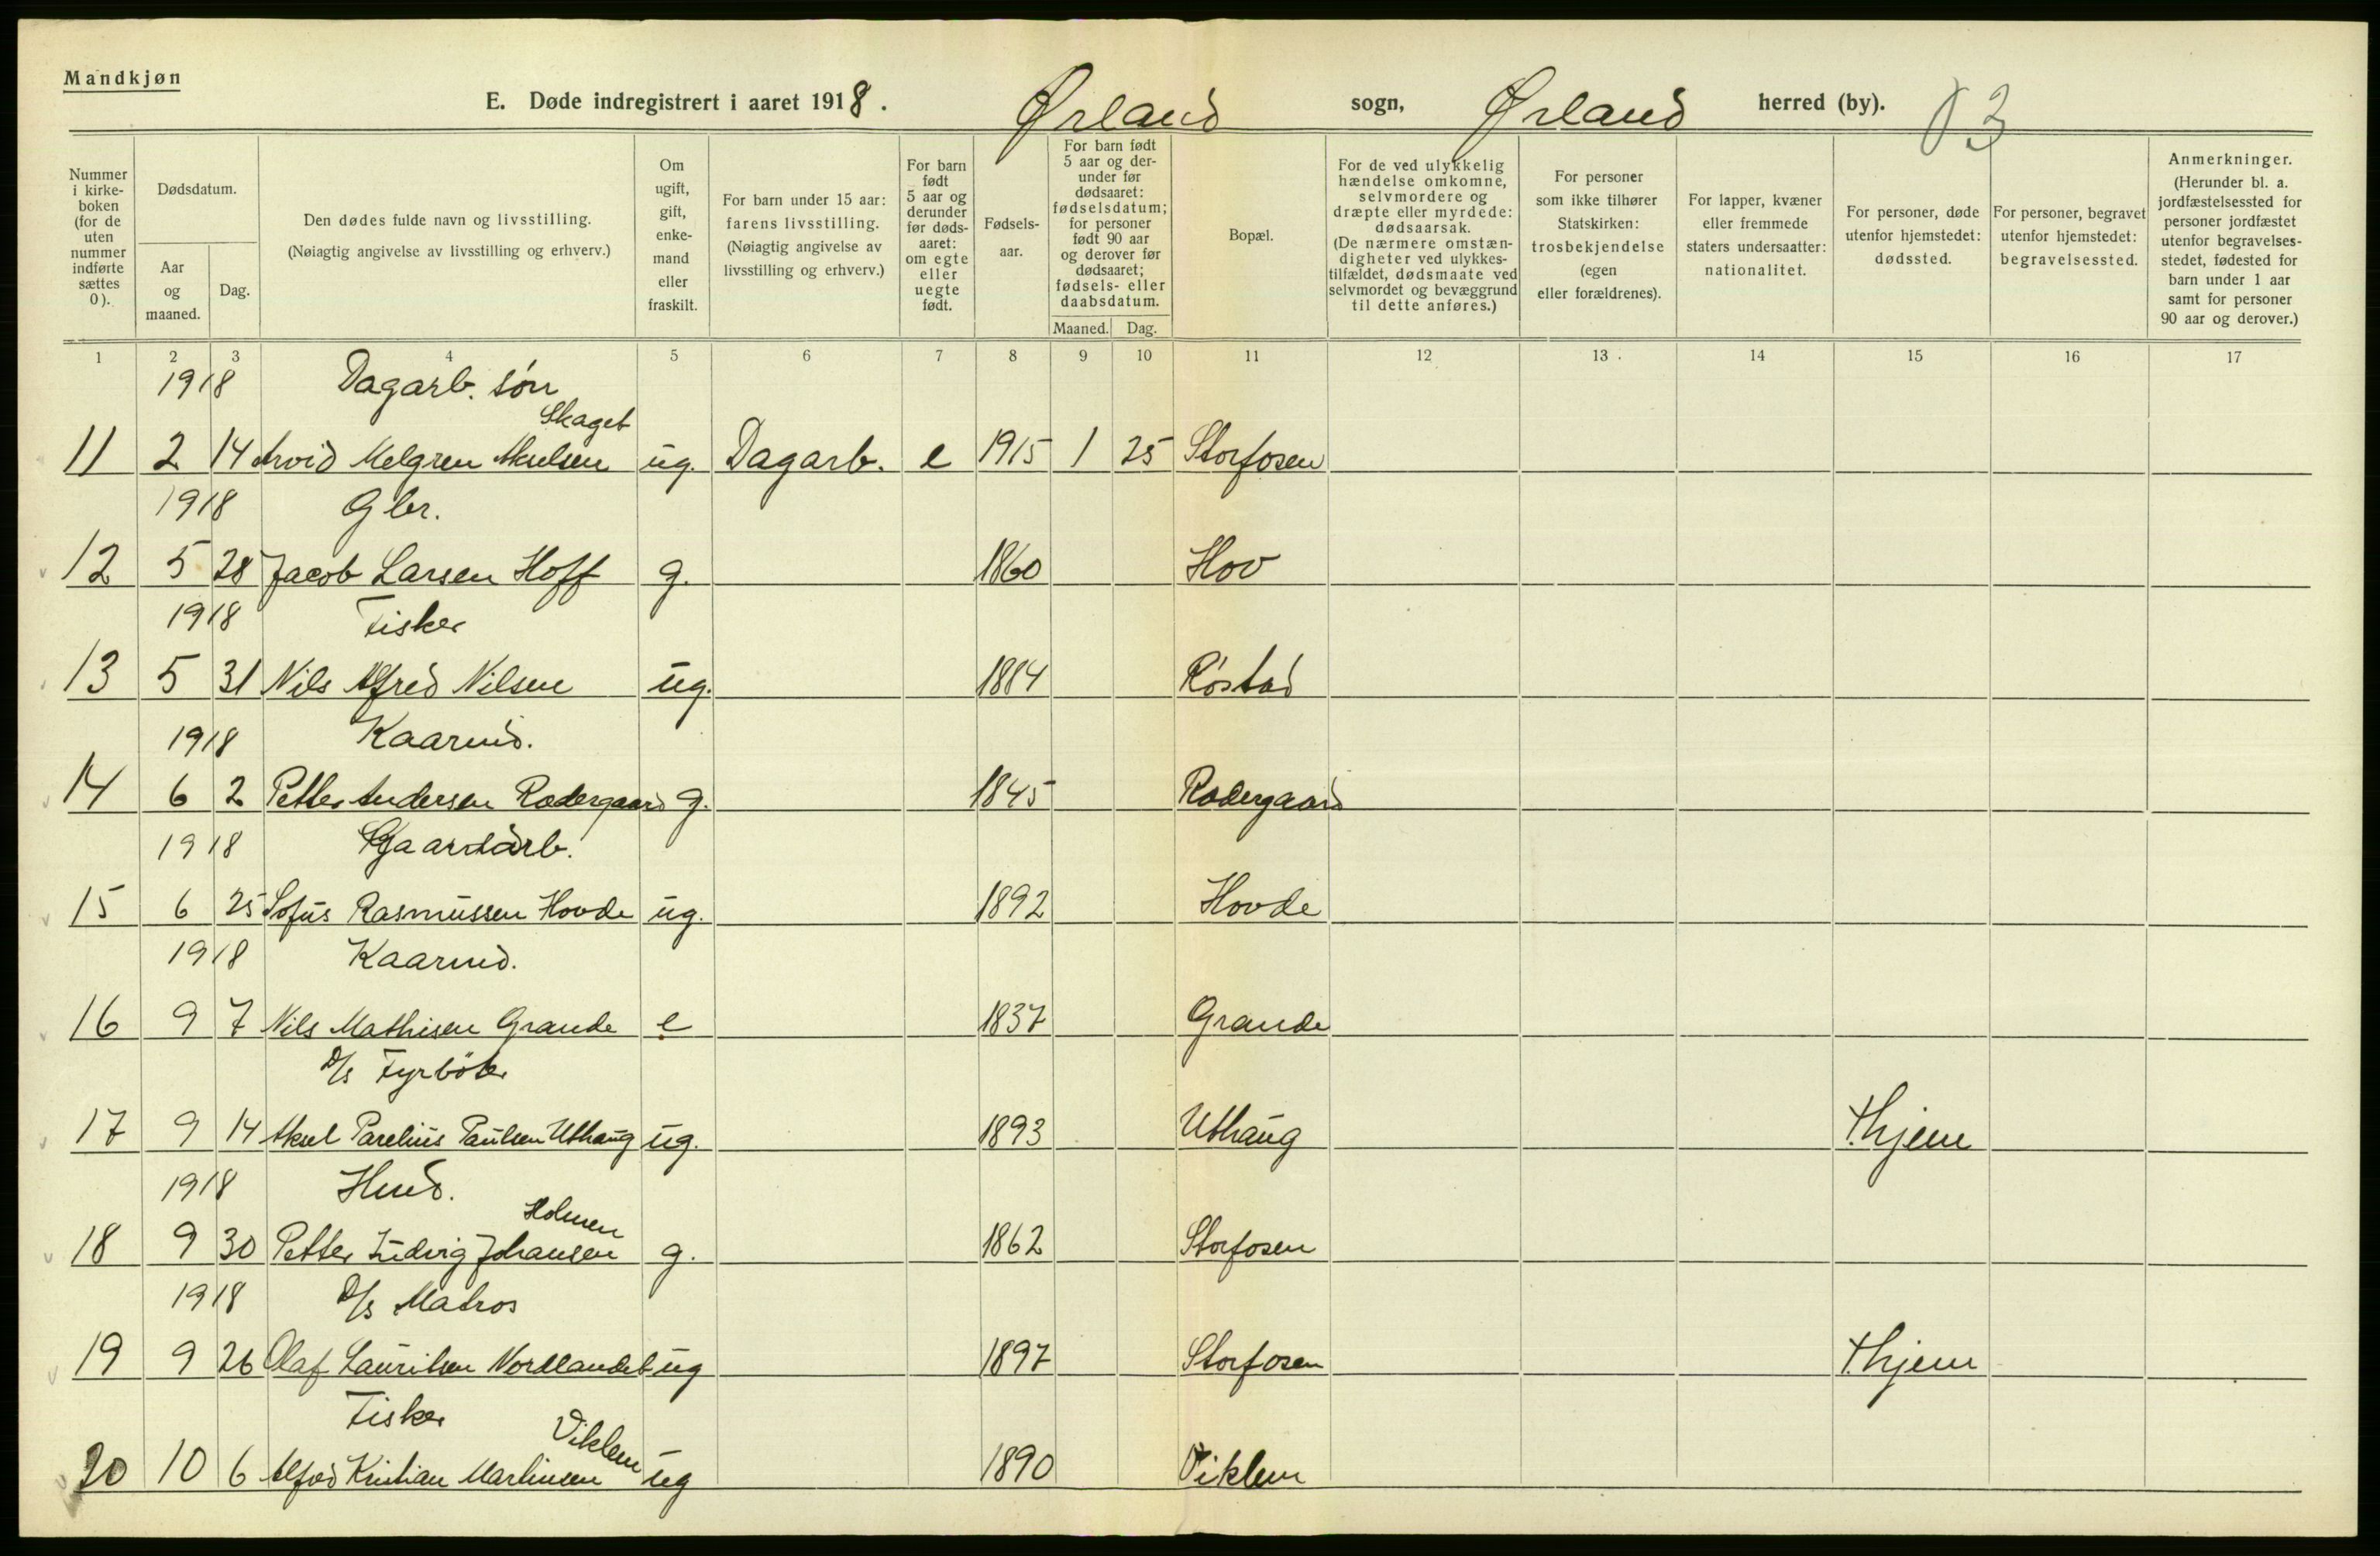 Mandkjøn
E. Døde indregistrert i aaret 1918. Ørland sogn, Ørland herred (by). 13
Nummer i kirke-boken (for de uten nummer indførte sættes 0).
Dødsdatum.
Aar og maaned.
Dag.
Den dødes fulde navn og livsstilling.
(Nøiagtig angivelse av livsstilling og erhverv.)
Om ugift, gift, enke-mand eller fraskilt.
For barn under 15 aar: farens livsstilling. (Nøiagtig angivelse av livsstilling og erhverv.)
For barn født 5 aar og derunder før døds-aaret: om egte eller uegte født.
Fødsels-aar.
For barn født 5 aar og der-under før dødsaaret: fødselsdatum; for personer født 90 aar og derover før dødsaaret; fødsels- eller daabsdatum.
Maaned. Dag.
Bopæl.
For de ved ulykkelig hændelse omkomne, selvmordere og dræpte eller myrdede: dødsaarsak. (De nærmere omstæn-digheter ved ulykkes-tilfældet, dødsmaate ved selvmordet og bevæggrund til dette anføres.)
For personer som ikke tilhører Statskirken: trosbekjendelse (egen eller forældrenes).
For lapper, kvæner eller fremmede staters undersaatter: nationalitet.
For personer, døde utenfor hjemstedet: dødssted.
For personer, begravet utenfor hjemstedet: begravelsessted.
Anmerkninger. (Herunder bl. a. jordfæstelsessted for personer jordfæstet utenfor begravelses-stedet, fødested for barn under 1 aar samt for personer 90 aar og derover.)
1 2 3 4 5 6 7 8 9 10 11 12 13 14 15 16 17
1918 Dagarb. søn
Skaget
11 2 14 Arvid Melgren Akselsen ug. Dagarb. e 1915 1 25 Storfosen
1918 Gbr.
12 5 28 Jacob Larsen Hoff g. 1860 Hov
1918 Fisker
13 5 31 Nils Alfred Nilsen ug. 1884 Røstad
1918 Kaarmd.
14 6 2 Petter Andersen Rodergaard g. 1845 Rodergaard
1918 Gaardarb.
15 6 25 Sofus Rasmussen Hovde ug. 1892 Hovde
1918 Kaarmd.
16 9 7 Nils Mathisen Grande e 1837 Grande
D/s Fyrbøter
17 9 14 Aksel Parelius Paulsen Uthaug ug. 1893 Uthaug t. hjem
1918 Hmd.
Holmen
18 9 30 Petter Ludvig Johansen g. 1862 Storfosen
1918 D/s Matros
19 9 26 Olaf Lauritsen Nordlandet ug 1897 Storfosen t. hjem
Fisker
Viklem
20 10 6 Alfred Kristian Martinsen ug 1890 Viklem